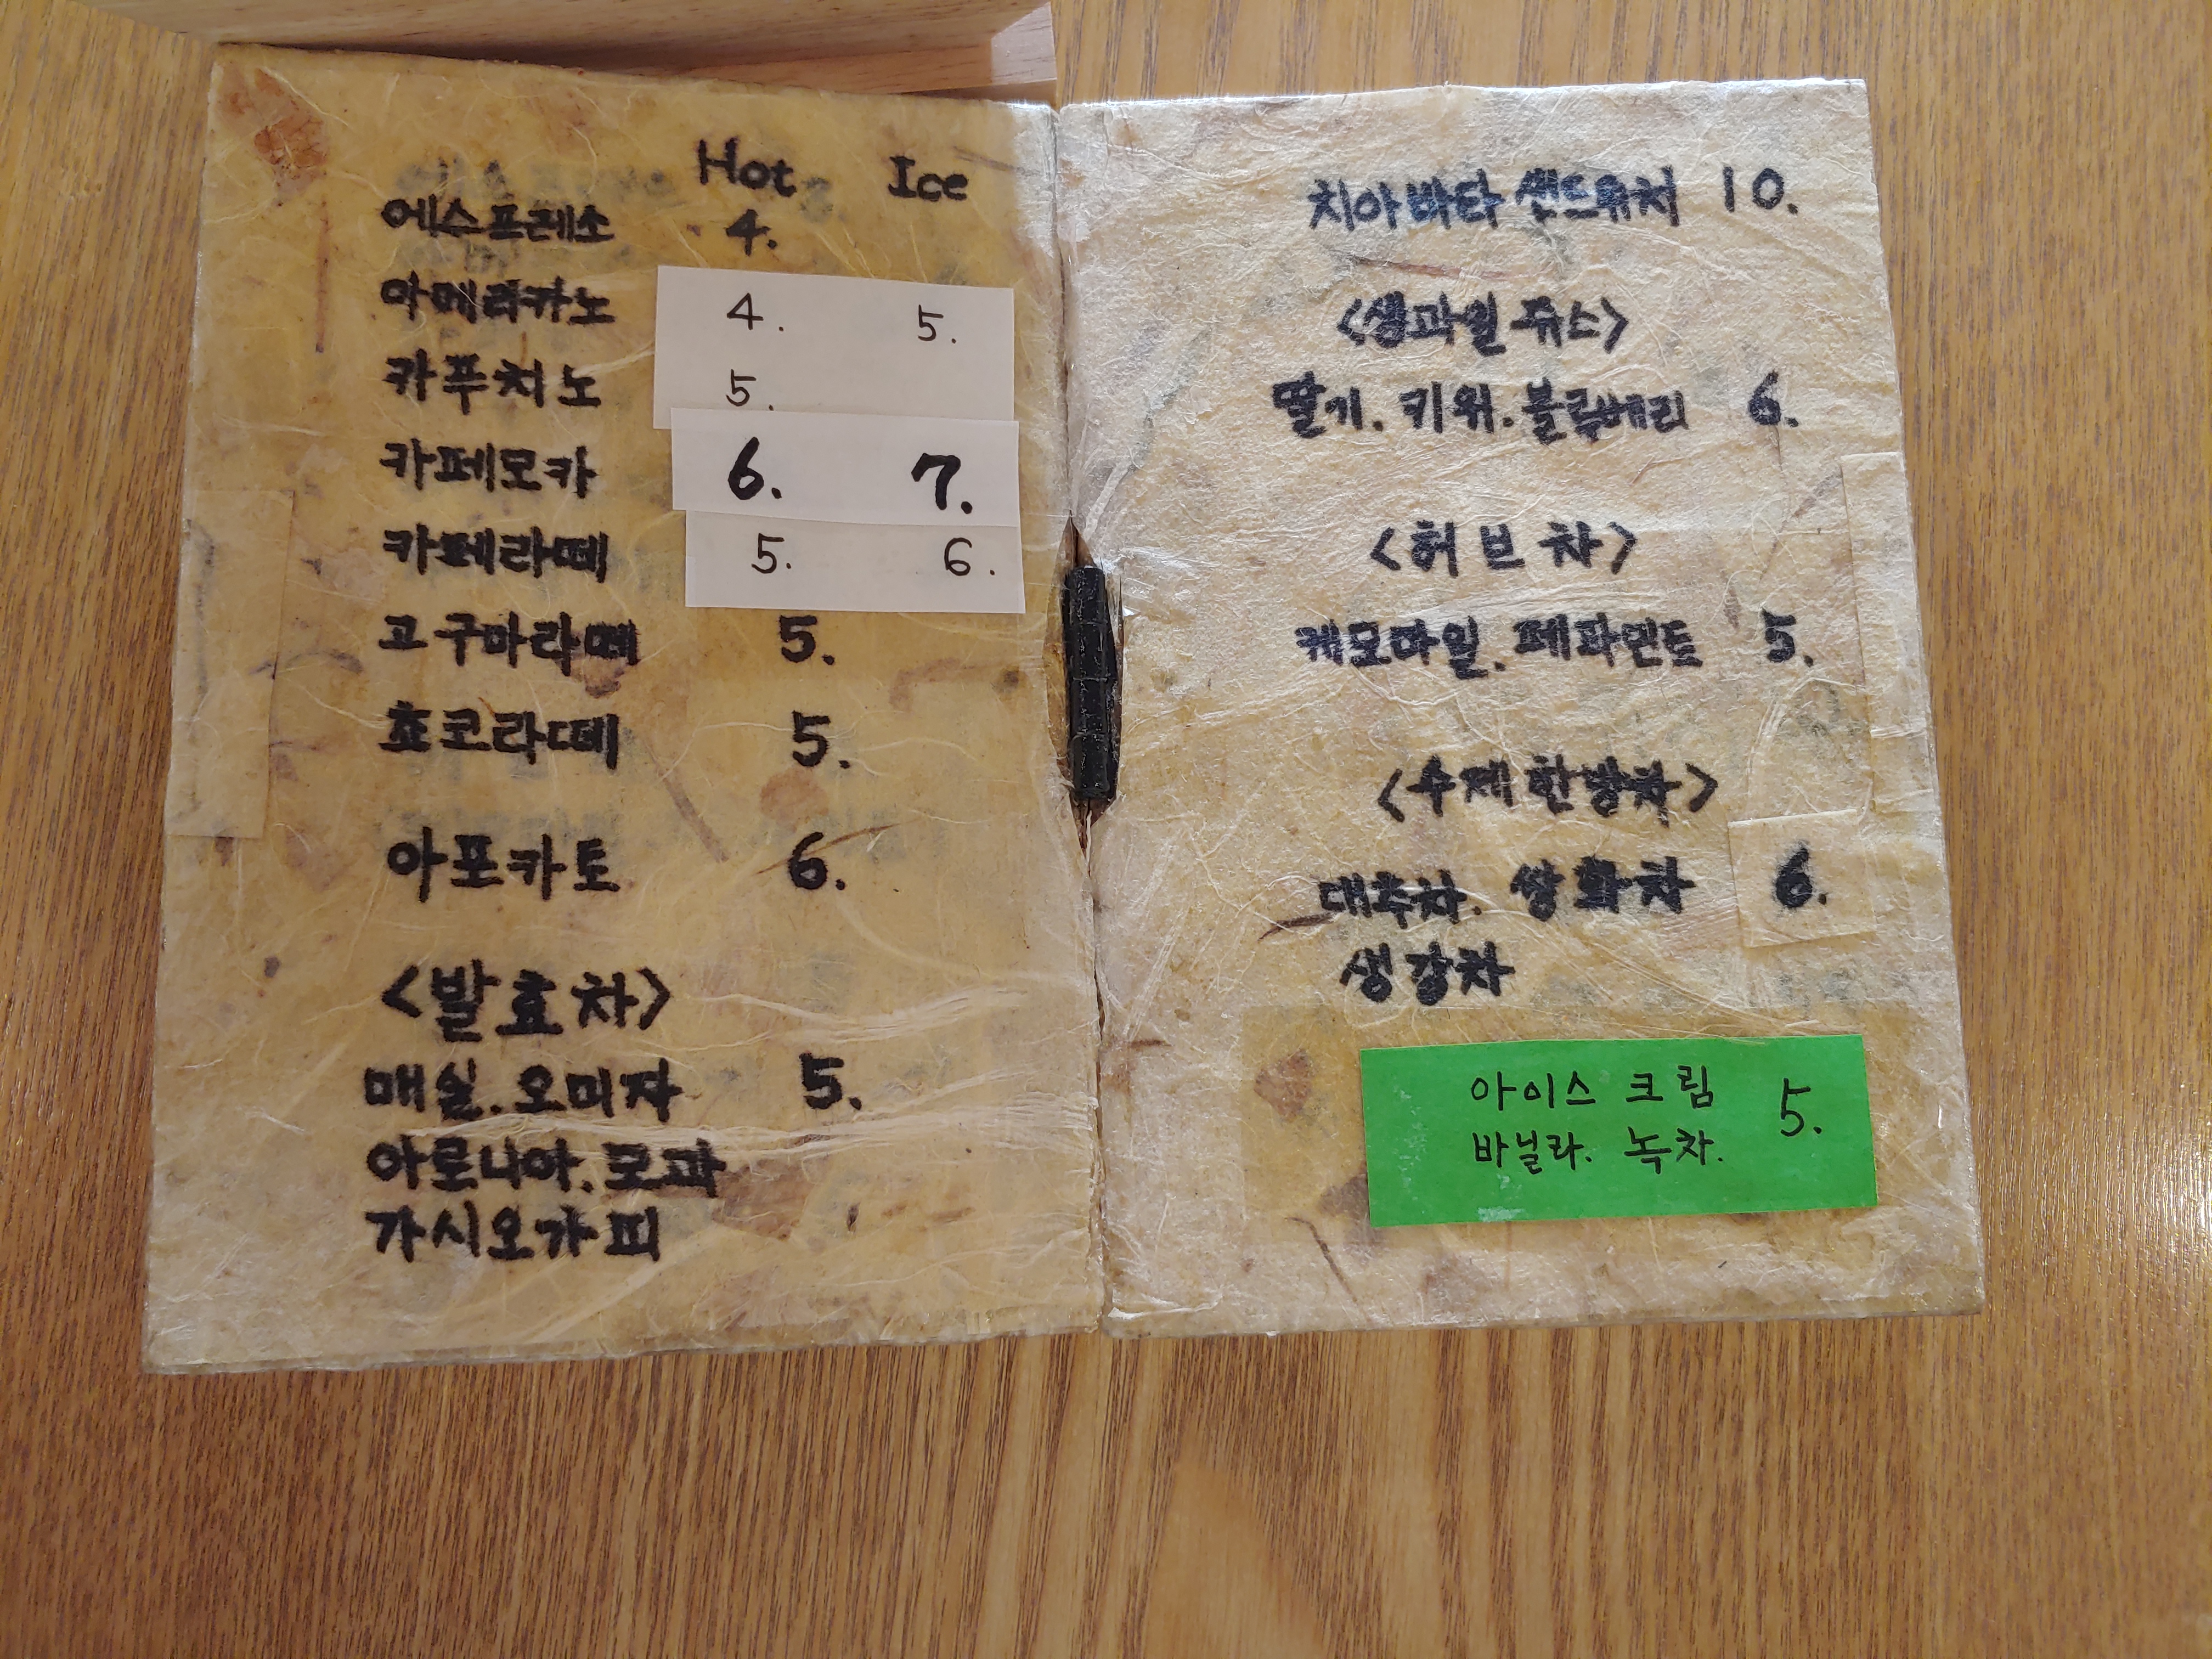 Hot Ice
에스프레소 4.
아메리카노 4. 5.
카푸치노 5.
카페모카 6. 7.
카페라떼 5. 6.
고구마라떼 5.
쵸코라떼 5.
아포카토 6.
<발효차>
매실. 오미자 5.
아로니아. 모과
가시오가피
치아바타 샌드위치 10.
<생과일 쥬스>
딸기. 키위. 블루베리 6.
<허브차>
캐모마일. 페파민트 5.
<수제 한방차>
대추차. 쌍화차 6.
생강차
아이스 크림 5.
바닐라. 녹차.